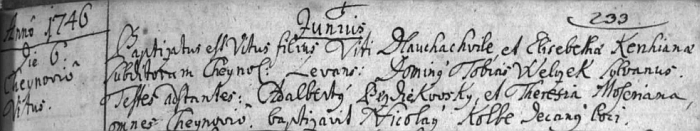 Anno 1746
Junius
233
Die 6
Cheynovio
Vitus.
Baptizatus est Vitus filius Viti Dlauhachvile et Elisebetha Kenhiana
subditorum Cheynol: Levans: Dominus Tobias Welyek sylvanus.
Testes adstantes: Adalbertus et Theresia Moseriana
omnes Cheynovio. baptizavit Nicolaus Kolbe Decanus loci.